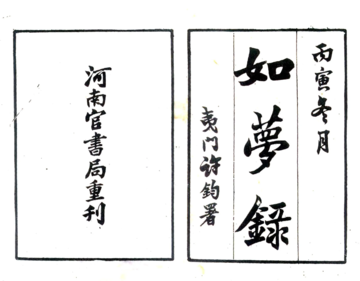 丙寅冬月
如夢録
夷门许钧署
河南官書局重刊